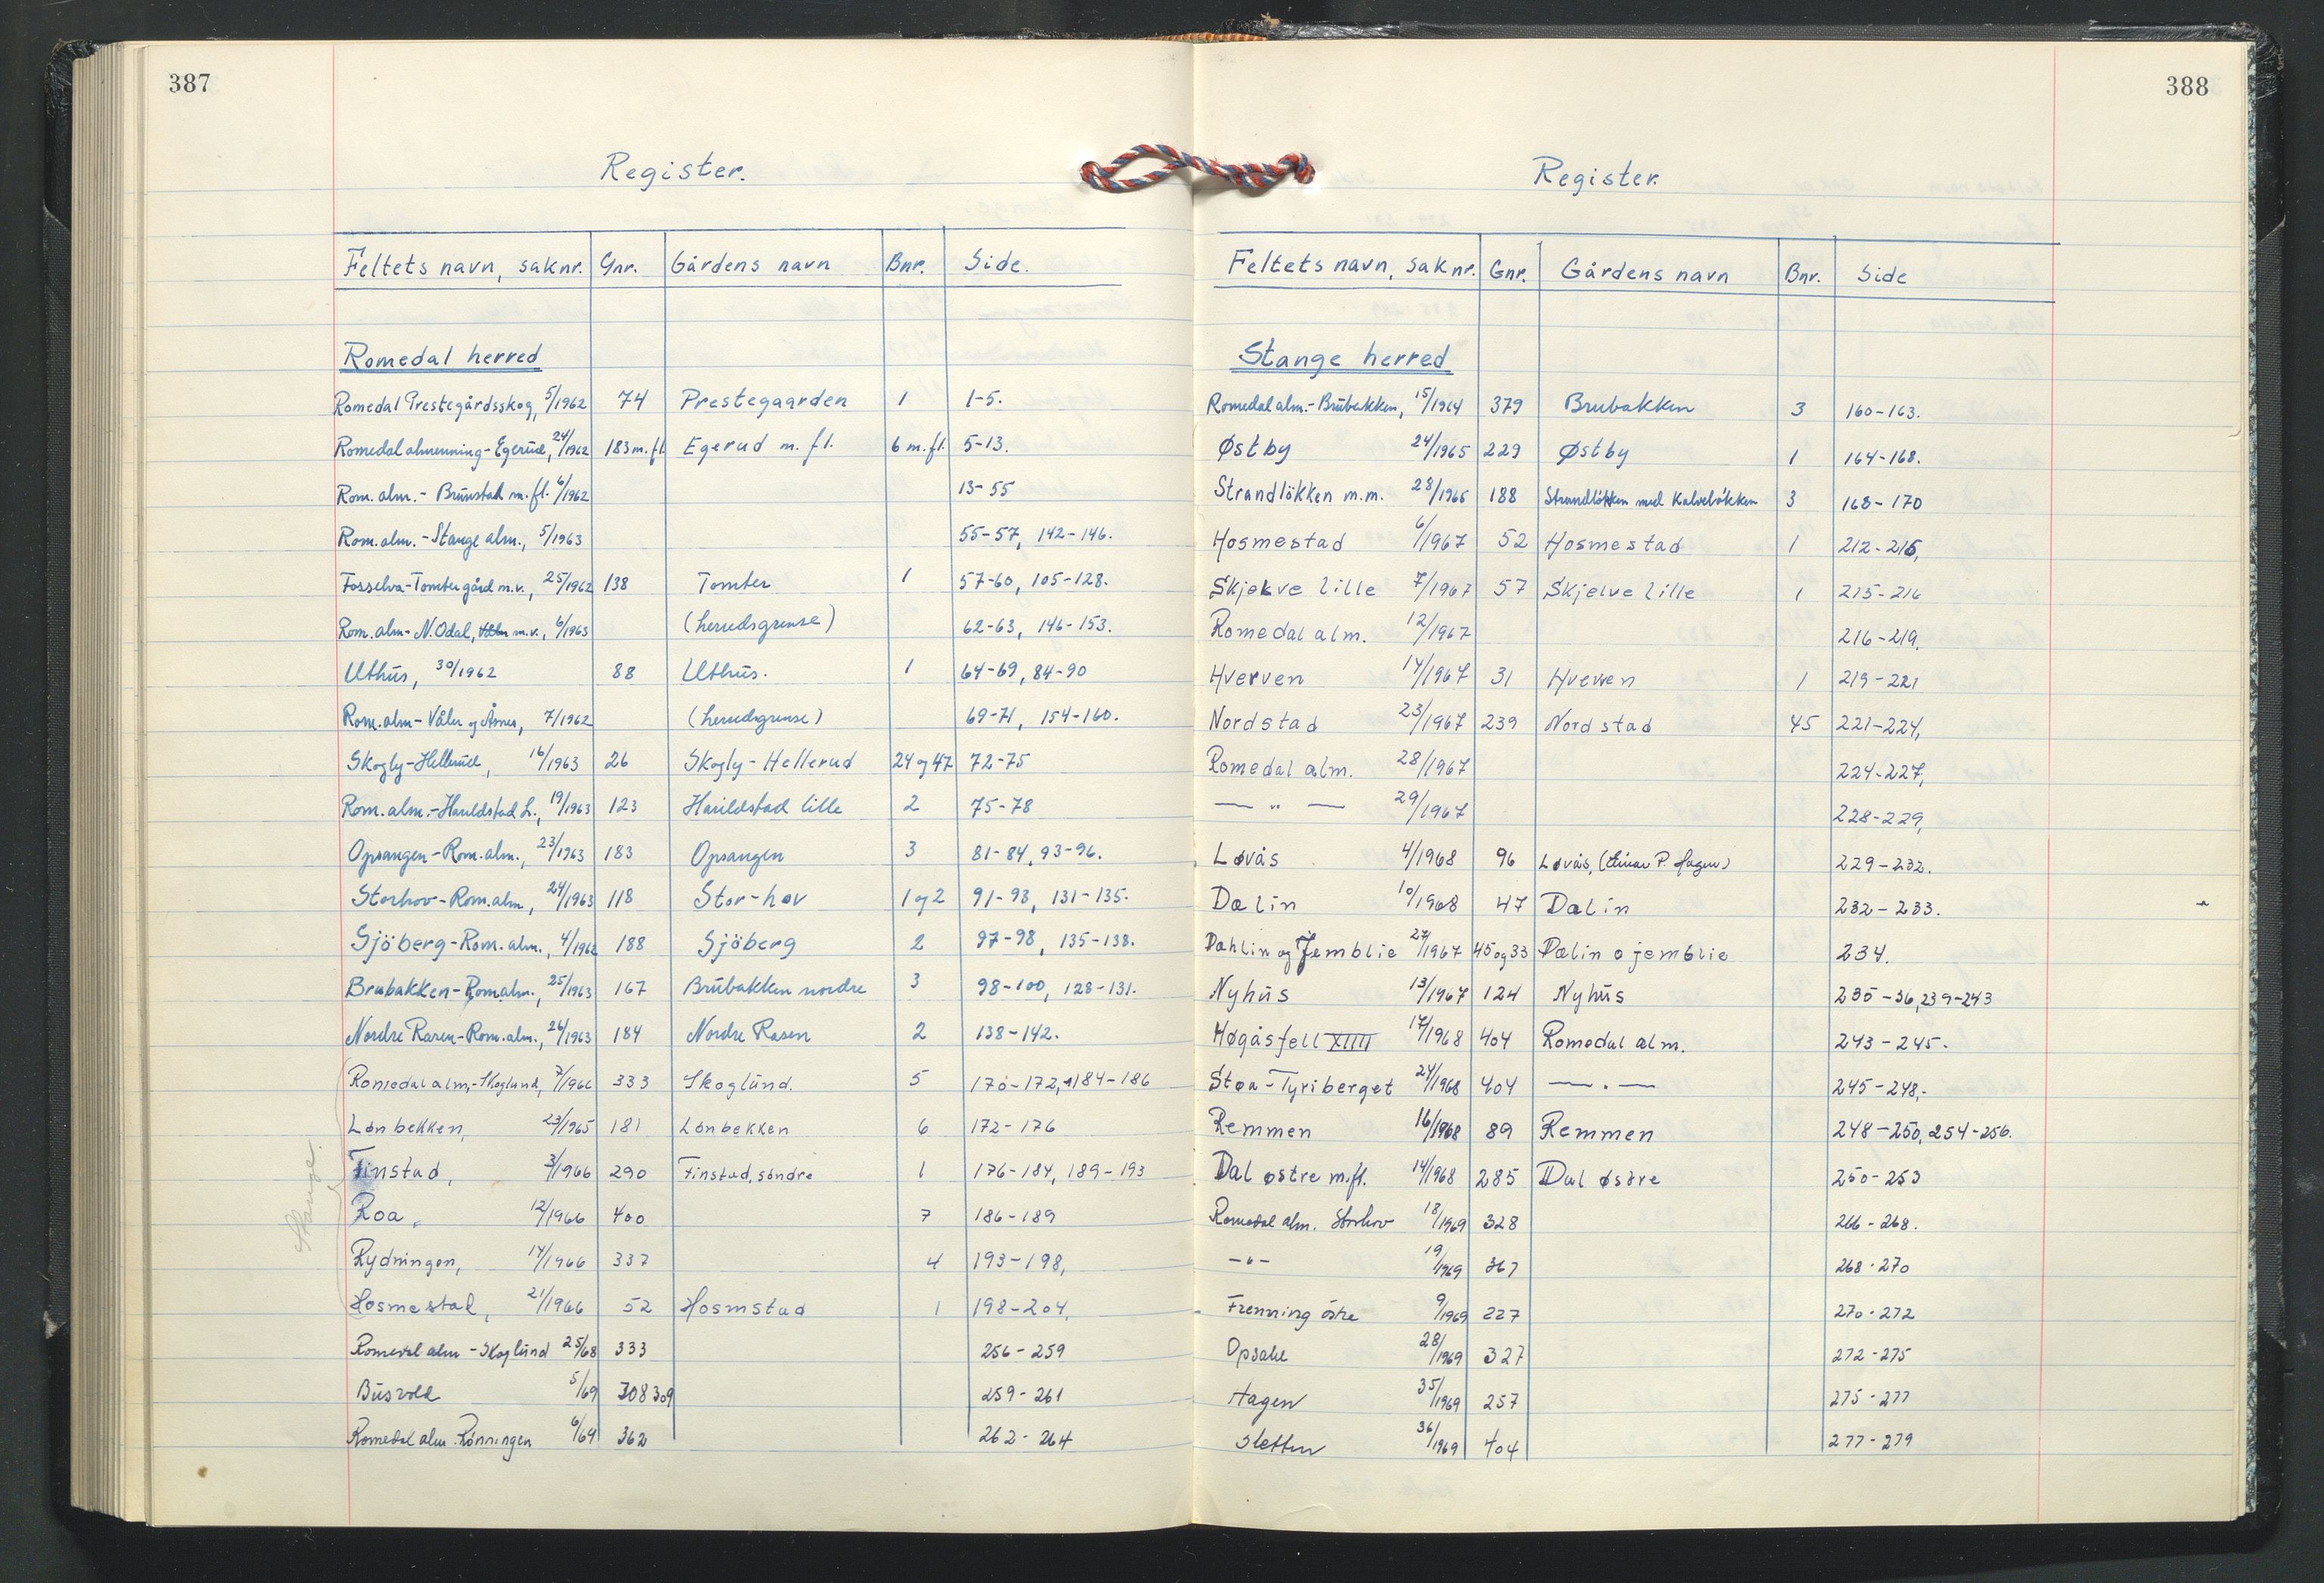 387
Register.
Feltets navn, saknr. Gnr. Gårdens navn Bnr. Side.
Romedal herred
Romedal Prestegårdsskog, 5/1962 74 Prestegaarden 1 1-5.
Romedal almenning-Egerud, 24/1962 183 m.fl. Egerud m. fl. 6 m.fl. 5-13.
Rom. alm.- Brunstad m.fl. 6/1962 13-55
Rom. alm.-Stange alm., 5/1963 55-57, 142-146.
Fosselva-Tomter gård m.v., 25/1962 138 Tomter 1 57-60, 105-128.
Rom. alm- N. Odal, m.v., 6/1963 (herredsgrense) 62-63, 146-153.
Uthus, 30/1962 88 Uthus. 1 64-69, 84-90
Rom. alm- Våler og Åsnes, 7/1962 (herredsgrense) 69-71, 154-160.
Skogly-Hellerud, 16/1963 26 Skogly-Hellerud 24 og 47 72-75
Rom. alm.-Harildstad L., 19/1963 123 Harildstad lille 2 75-78
Opsangen-Rom. alm., 23/1963 183 Opsangen 3 81-84, 93-96.
Storhov-Rom. alm, 24/1963 118 Stor-hov 1 og 2 91-93, 131-135.
Sjöberg-Rom. alm., 4/1962 188 Sjöberg 2 97-98, 135-138.
Brubakken-Rom. alm., 25/1963 167 Brubakken nordre 3 98-100, 128-131.
Nordre Rasen-Rom. alm., 26/1963 184 Nordre Rasen 2 138-142.
Romedal alm,-Skoglund, 7/1966 333 Skoglund. 5 170-172, 184-186
Lönbekken, 23/1965 181 Lönbekken 6 172-176
Finstad, 3/1966 290 Finstad, söndre 1 176-184, 189-193
Stange.
Roa, 12/1966 400 7 186-189
Rydningen, 14/1966 337 4 193-198,
Hosmestad, 21/1966 52 Hosmstad 1 198-204,
Romedal alm - Skoglund 25/68 333 256-259
Busvold 5/69 308 309 259-261
Romedal alm. Rönningen 6/69 362 262-264
388
Register.
Feltets navn, saknr. Gnr. Gårdens navn Bnr. Side
Stange herred
Romedal alm.-Brubakken, 15/1964 379 Brubakken 3 160-163.
Østby 24/1965 229 Østby 1 164-168.
Strandlökken m.m. 28/1965 188 Strandlökken med Kalvelökken 3 168-170
Hosmestad 6/1967 52 Hosmestad 1 212-215,
Skjelve lille 7/1967 57 Skjelve lille 1 215-216
Romedal alm. 12/1967 216-219.
Hverven 14/1967 31 Hverven 1 219-221
Nordstad 23/1967 239 Nordstad 45 221-224,
Romedal alm. 28/1967 224-227,
— " — 29/1967 228-229,
Løvås 4/1968 96 Løvås, (Einar P. Hagen) 229-232.
Dalin 10/1968 47 Dalin 232-233.
Dahlin og Jemblie 27/1967 45 og 33 Dalin o jemblie 234.
Nyhus 13/1967 124 Nyhus 235-36, 239-243
Høgåsfell XIIII 17/1968 404 Romedal alm. 243-245.
Støa-Tyriberget 24/1968 404 — . — 245-248,-
Remmen 16/1968 89 Remmen 248-250, 254-256.
Dal østre m.fl. 14/1968 285 Dal østre 250-253
Romedal alm. Storhov 18/1969 328 266-268.
- " - 19/1969 367 268-270
Frenning östre 9/1969 227 270-272
Opsahl 28/1969 327 272-275
Hagen 35/1969 257 275-277
Sletten 36/1969 404 277-279